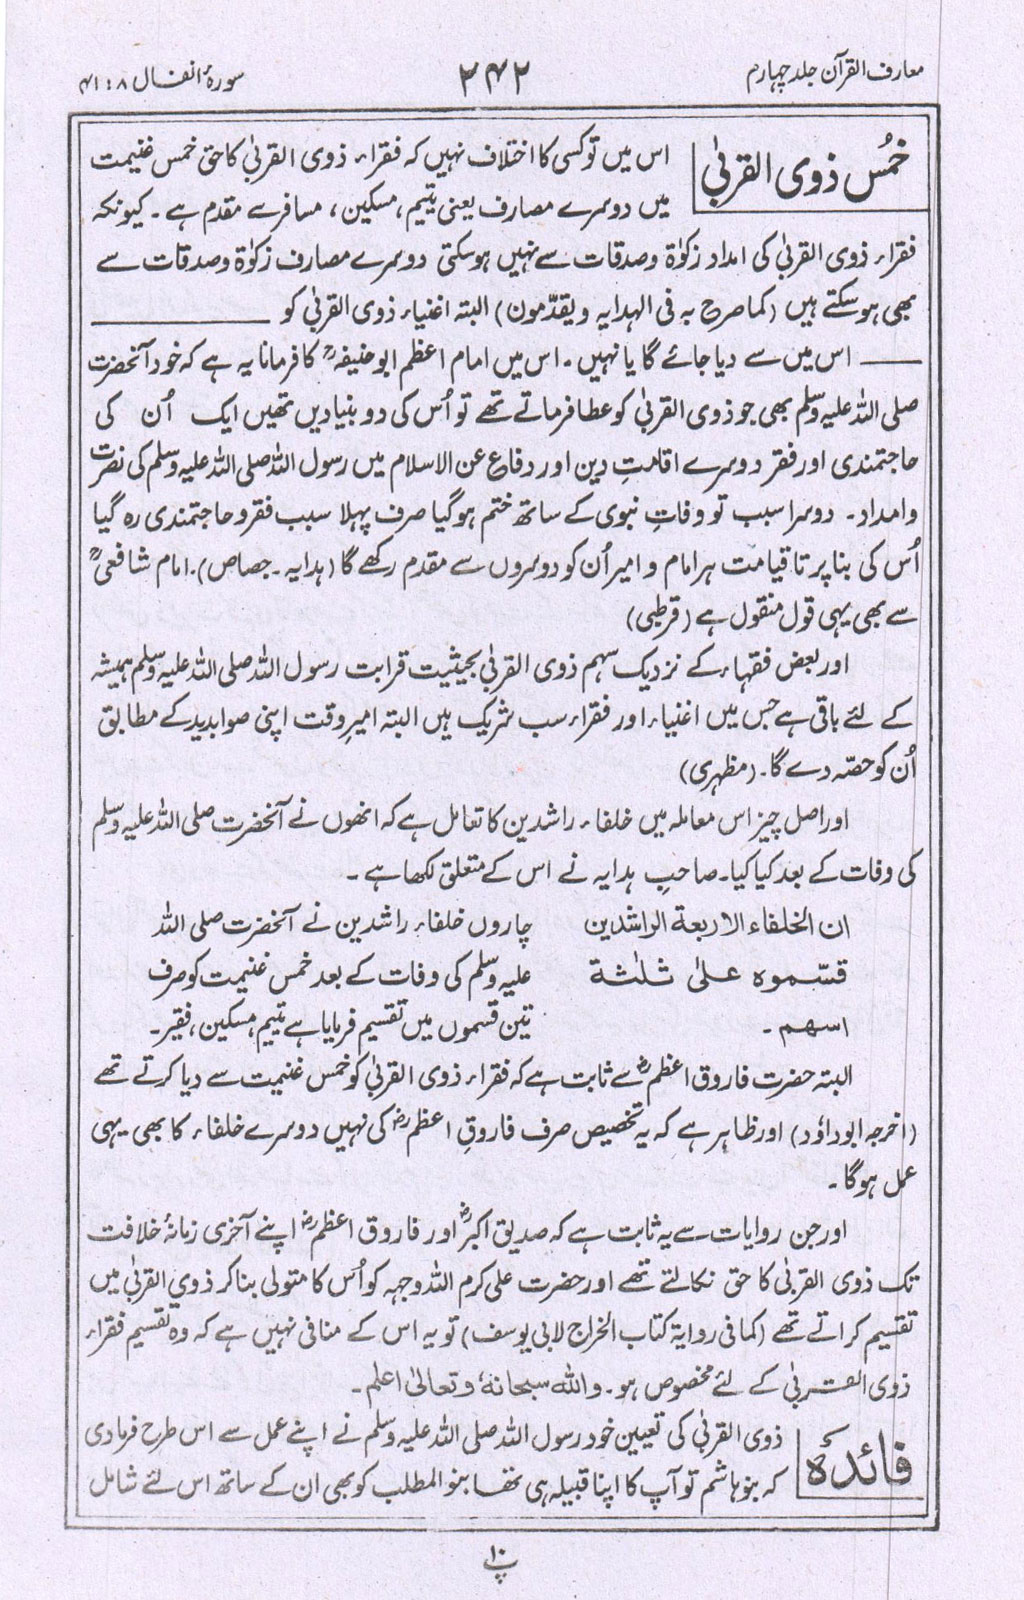 معارف القرآن جلد چہارم
۲۴۲
سورۂ انفال ۸ : ۴۱
خمُس ذوی القربیٰ
اس میں تو کسی کا اختلاف نہیں کہ فقراء ذوی القربیٰ کا حق خمس غنیمت
میں دوسرے مصارف یعنی یتیم، مسکین، مسافر سے مقدم ہے ۔ کیونکہ
فقراء ذوی القربیٰ کی امداد زکوٰۃ و صدقات سے نہیں ہو سکتی دوسرے مصارف زکوٰۃ و صدقات سے
بھی ہو سکتے ہیں (کما صرح بہ فی الہدایہ و یقدّمون) البتہ اغنیاء ذوی القربیٰ کو ـــــــــــــــــ
ـــــــ اس میں سے دیا جائے گا یا نہیں ۔ اس میں امام اعظم ابو حنیفہؒ کا فرمانا یہ ہے کہ خود آنحضرت
صلی اللہ علیہ وسلم بھی جو ذوی القربیٰ کو عطا فرماتے تھے تو اُس کی دو بنیادیں تھیں ایک اُن کی
حاجتمندی اور فقر دوسرے اقامتِ دین اور دفاع عن الاسلام میں رسول اللہ صلی اللہ علیہ وسلم کی نصرت
و امداد ۔ دوسرا سبب تو وفاتِ نبوی کے ساتھ ختم ہو گیا صرف پہلا سبب فقر و حاجتمندی رہ گیا
اُس کی بنا پر تا قیامت ہر امام و امیر اُن کو دوسروں سے مقدم رکھے گا (ہدایہ ۔ جصاص)۔ امام شافعیؒ
سے بھی یہی قول منقول ہے (قرطبی)
اور بعض فقہاء کے نزدیک سہم ذوی القربیٰ بحیثیت قرابت رسول اللہ صلی اللہ علیہ وسلم ہمیشہ
کے لئے باقی ہے جس میں اغنیاء اور فقراء سب شریک ہیں البتہ امیرِ وقت اپنی صوابدید کے مطابق
اُن کو حصّہ دے گا ۔ (مظہری)
اور اصل چیز اس معاملہ میں خلفاء راشدین کا تعامل ہے کہ انھوں نے آنحضرت صلی اللہ علیہ وسلم
کی وفات کے بعد کیا کیا ۔ صاحبِ ہدایہ نے اس کے متعلق لکھا ہے ۔
ان الخلفاء الاربعة الراشدین
قسّموہ علیٰ ثلٰثة
اسھم ۔
چاروں خلفاء راشدین نے آنحضرت صلی اللہ
علیہ وسلم کی وفات کے بعد خمس غنیمت کو صرف
تین قسموں میں تقسیم فرمایا ہے یتیم، مسکین، فقیر ۔
البتہ حضرت فاروق اعظمؓ سے ثابت ہے کہ فقراء ذوی القربیٰ کو خمس غنیمت سے دیا کرتے تھے
(اخرجہ ابو داؤد) اور ظاہر ہے کہ یہ تخصیص صرف فاروقِ اعظمؓ کی نہیں دوسرے خلفاء کا بھی یہی
عمل ہوگا ۔
اور جن روایات سے یہ ثابت ہے کہ صدیق اکبرؓ اور فاروق اعظمؓ اپنے آخری زمانۂ خلافت
تک ذوی القربیٰ کا حق نکالتے تھے اور حضرت علی کرم اللہ وجہہ کو اُس کا متولی بنا کر ذوی القربیٰ میں
تقسیم کراتے تھے (کما فی روایۃ کتاب الخراج لابی یوسف) تو یہ اس کے منافی نہیں ہے کہ وہ تقسیم فقراء
ذوی القربیٰ کے لئے مخصوص ہو ۔ واللہ سبحانہٗ و تعالیٰ اعلم ۔
فائدہ
ذوی القربیٰ کی تعیین خود رسول اللہ صلی اللہ علیہ وسلم نے اپنے عمل سے اس طرح فرما دی
کہ بنو ہاشم تو آپ کا اپنا قبیلہ ہی تھا بنو المطلب کو بھی ان کے ساتھ اس لئے شامل
پ ۱۰